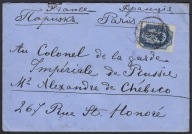 France Франція
Парижъ Paris
Au Colonel de la garde
Impériale de Russie
Mr Alexandre de Chébeco
267 Rue St. Honoré